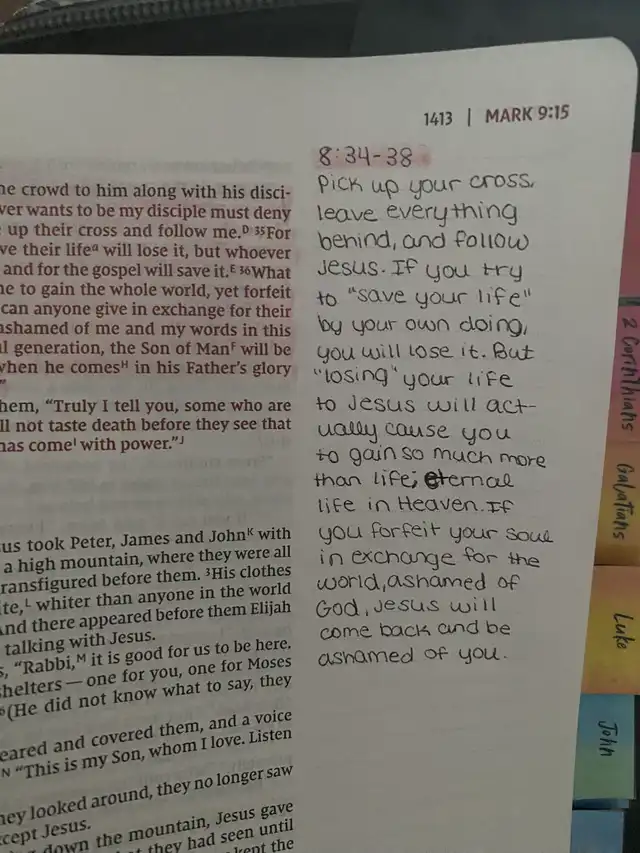 1413 | MARK 9:15
he crowd to him along with his disci-
ver wants to be my disciple must deny
up their cross and follow me.D 35For
ve their lifea will lose it, but whoever
and for the gospel will save it.E 36What
ne to gain the whole world, yet forfeit
can anyone give in exchange for their
ashamed of me and my words in this
l generation, the Son of ManF will be
when he comesH in his Father's glory
"
hem, "Truly I tell you, some who are
ll not taste death before they see that
has comeI with power."J
us took Peter, James and JohnK with
a high mountain, where they were all
ransfigured before them. 3His clothes
ite,L whiter than anyone in the world
And there appeared before them Elijah
talking with Jesus.
s, "Rabbi,M it is good for us to be here.
shelters — one for you, one for Moses
6(He did not know what to say, they
eared and covered them, and a voice
N "This is my Son, whom I love. Listen
hey looked around, they no longer saw
xcept Jesus.
down the mountain, Jesus gave
t they had seen until
kept the
8:34-38
Pick up your cross,
leave everything
behind, and follow
Jesus. If you try
to "save your life"
by your own doing,
you will lose it. But
"losing" your life
to Jesus will act-
ually cause you
to gain so much more
than life; eternal
life in Heaven. If
you forfeit your soul
in exchange for the
world, ashamed of
God, Jesus will
come back and be
ashamed of you.
2 Corinthians
Galatians
Luke
John